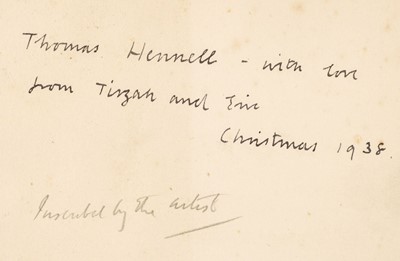 Thomas Hennell - with love
from Tirzah and Eric
Christmas 1938.
Inscribed by the artist